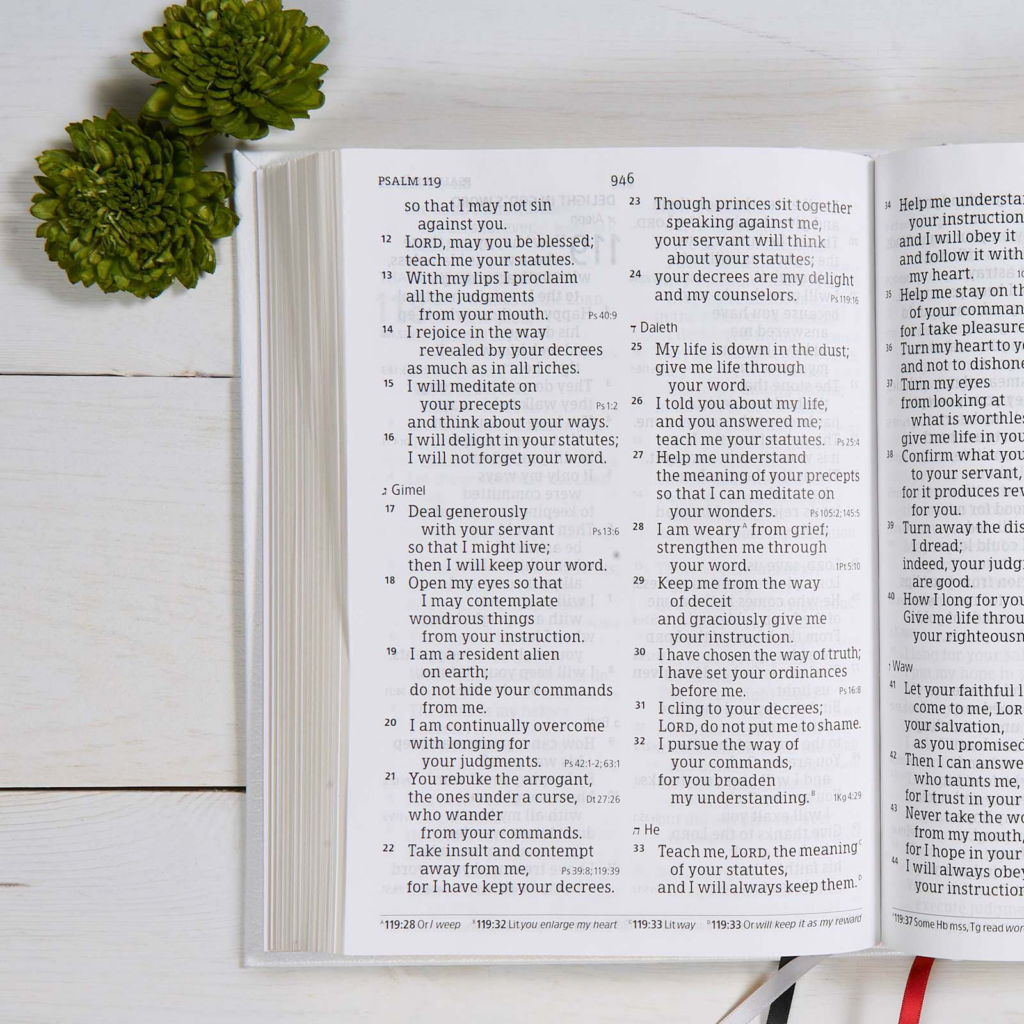 PSALM 119
946
so that I may not sin
against you.
12 LORD, may you be blessed;
teach me your statutes.
13 With my lips I proclaim
all the judgments
from your mouth. Ps 40:9
14 I rejoice in the way
revealed by your decrees
as much as in all riches.
15 I will meditate on
your precepts Ps 1:2
and think about your ways.
16 I will delight in your statutes;
I will not forget your word.
ג Gimel
17 Deal generously
with your servant Ps 13:6
so that I might live;
then I will keep your word.
18 Open my eyes so that
I may contemplate
wondrous things
from your instruction.
19 I am a resident alien
on earth;
do not hide your commands
from me.
20 I am continually overcome
with longing for
your judgments. Ps 42:1-2; 63:1
21 You rebuke the arrogant,
the ones under a curse, Dt 27:26
who wander
from your commands.
22 Take insult and contempt
away from me, Ps 39:8; 119:39
for I have kept your decrees.
23 Though princes sit together
speaking against me,
your servant will think
about your statutes;
24 your decrees are my delight
and my counselors. Ps 119:16
ד Daleth
25 My life is down in the dust;
give me life through
your word.
26 I told you about my life,
and you answered me;
teach me your statutes. Ps 25:4
27 Help me understand
the meaning of your precepts
so that I can meditate on
your wonders. Ps 105:2; 145:5
28 I am weary A from grief;
strengthen me through
your word. 1Pt 5:10
29 Keep me from the way
of deceit
and graciously give me
your instruction.
30 I have chosen the way of truth;
I have set your ordinances
before me. Ps 16:8
31 I cling to your decrees;
LORD, do not put me to shame.
32 I pursue the way of
your commands,
for you broaden
my understanding. B 1Kg 4:29
ה He
33 Teach me, LORD, the meaning C
of your statutes,
and I will always keep them. D
A 119:28 Or I weep B 119:32 Lit you enlarge my heart C 119:33 Lit way D 119:33 Or will keep it as my reward
34 Help me understa
your instruction
and I will obey it
and follow it with
my heart.
35 Help me stay on th
of your comman
for I take pleasure
36 Turn my heart to yo
and not to dishone
37 Turn my eyes
from looking at
what is worthles
give me life in you
38 Confirm what you
to your servant,
for it produces rev
for you.
39 Turn away the dis
I dread;
indeed, your judg
are good.
40 How I long for you
Give me life throu
your righteousn
ו Waw
41 Let your faithful l
come to me, LOR
your salvation,
as you promised
42 Then I can answe
who taunts me,
for I trust in your
43 Never take the wo
from my mouth,
for I hope in your
44 I will always obey
your instruction
A 119:37 Some Hb mss, Tg read wor